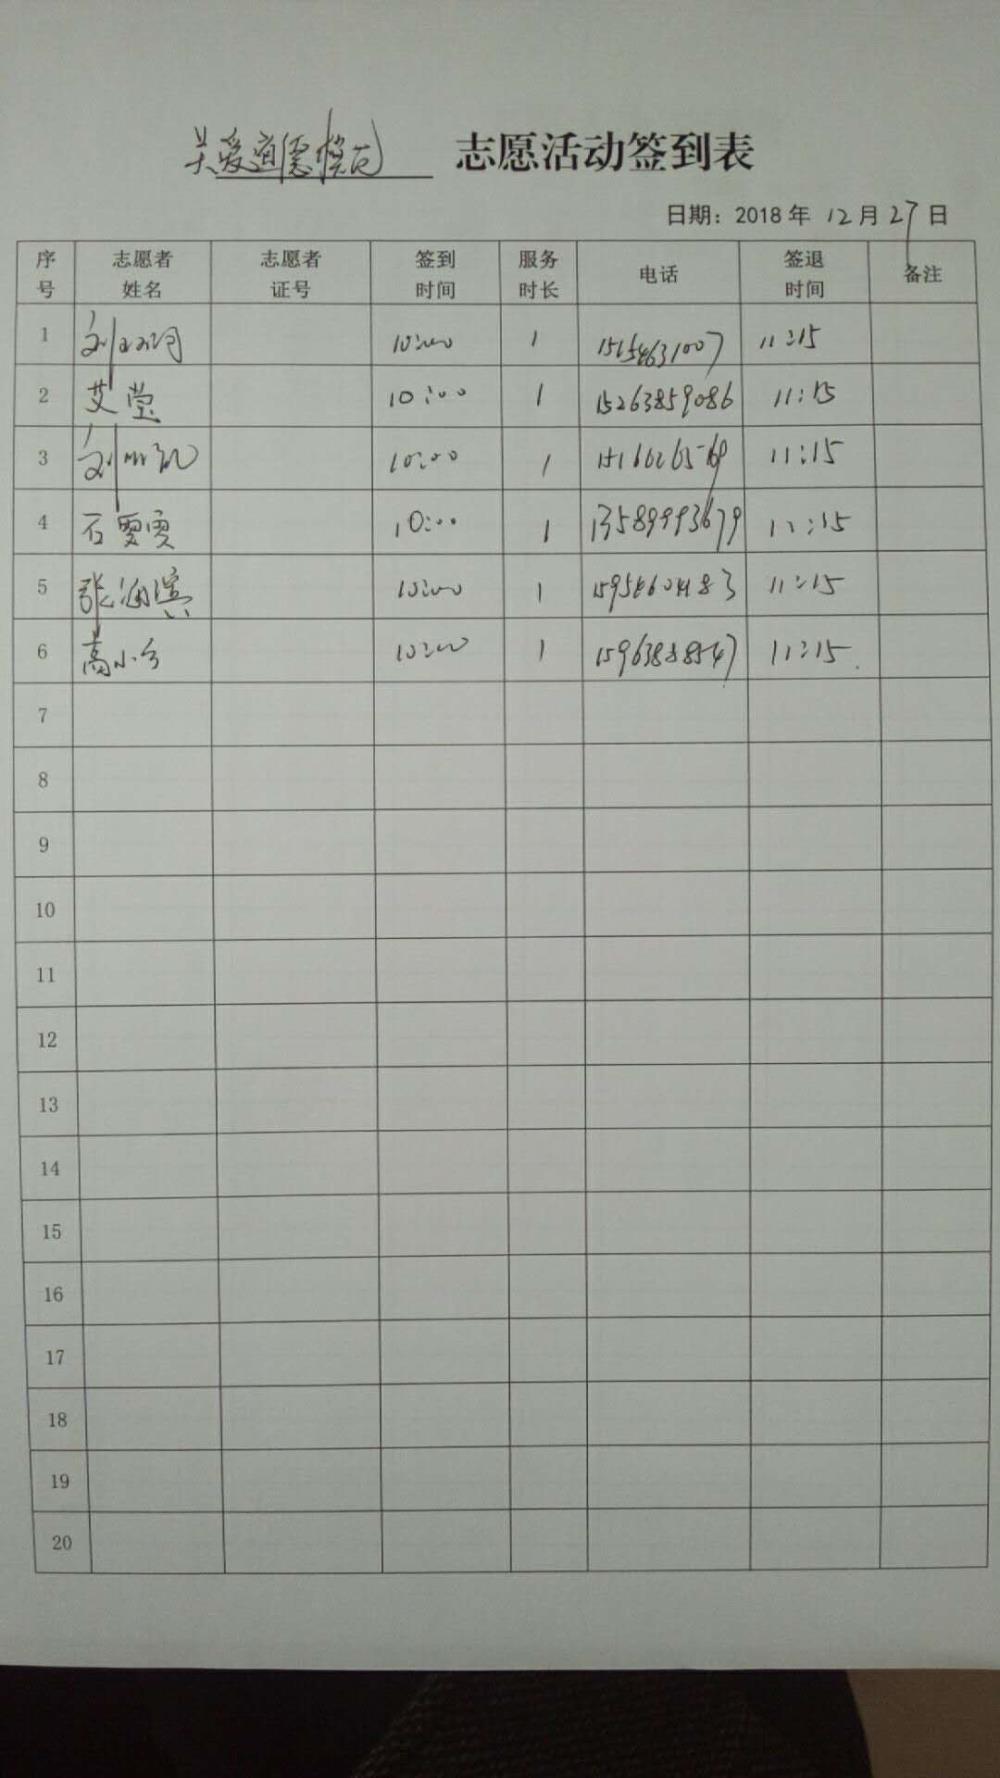 关爱道德模范 志愿活动签到表
日期：2018 年 12 月 27 日
序号 志愿者姓名 志愿者证号 签到时间 服务时长 电话 签退时间 备注
1 刘 10:00 1 11:15
2 艾莹 10:00 1 15263859086 11:15
3 刘 10:00 1 11:15
4 石雯雯 10:00 1 13589993679 11:15
5 张海滨 10:00 1 11:15
6 高小 10:00 1 15963888547 11:15
7
8
9
10
11
12
13
14
15
16
17
18
19
20